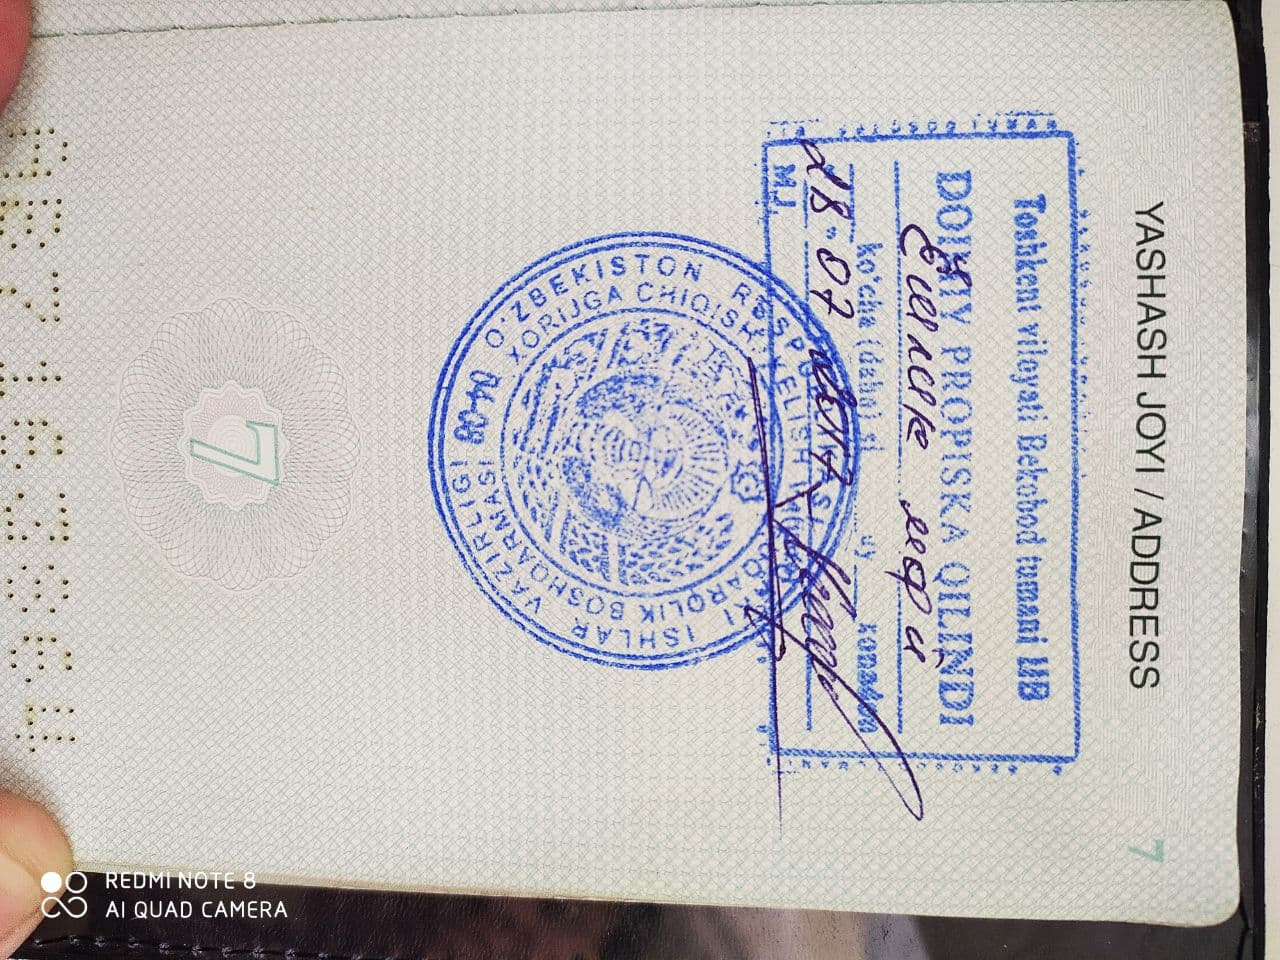 YASHASH JOYI / ADDRESS 7
Toshkent viloyati Bekobod tumani IIB
DOIMIY PROPISKA QILINDI
Ёшлик мфй
ko'cha (daha) si uy xonadon
28 07 2017
M.J.
O'ZBEKISTON RESPUBLIKASI ICHKI ISHLAR VAZIRLIGI
XORIJGA CHIQISH, KELISH VA FUQAROLIK BOSHQARMASI
04-08
7
REDMI NOTE 8
AI QUAD CAMERA